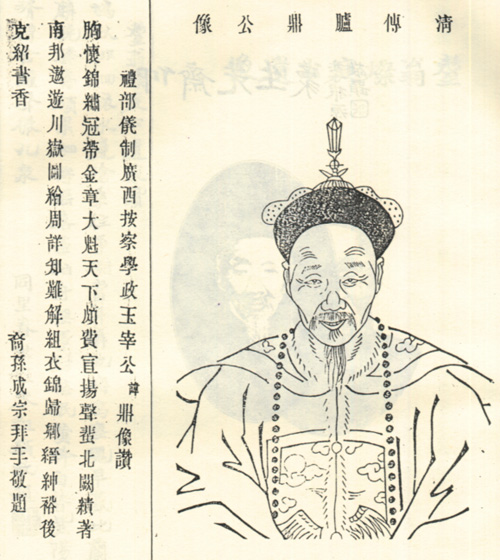 清傳臚鼎公像
禮部儀制廣西按察學政玉宰公諱鼎像讚
胸懷錦繡冠帶金章大魁天下頗費宣揚聲蜚北闕績著
南邦遨遊川嶽圖繪周詳知難解組衣錦歸鄉縉紳裕後
克紹書香 裔孫成宗拜手敬題